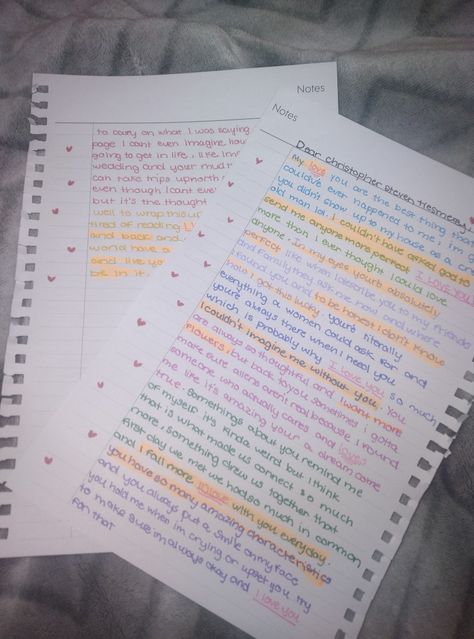 Notes
to carry on what I was saying
page I cant even imagine how
going to get in life, like
wedding and your mud
can take trips upnorth
even though I cant eve
but it's the thought
well to wrap this up
tired of reading
and back and
world have a
and live yo
be in it.
Notes
Dear christopher steven
My love you are the best thing
couldve ever happened to me, im
you didn't show up at my house as a
old man lol. I couldn't have asked god to
send me anyone more perfect I love you
more than i ever thought i could love
anyone. In my eyes you're absolutely
perfect like when i describe you to my friends
and family they ask me how and where
i found you and to be honest I don't know
how I got this lucky. you're literally
everything a women could ask for and
you're always there when I need you
which is probably why I love you so much
I couldn't imagine me without you. you
are always so thoughtful and I want more
flowers, but back to you sometimes I gotta
make sure aliens aren't real because I found
someone who actually cares and loves
me like it's amazing your a dream come
true. somethings about you remind me
of myself its kinda weird but I think
that is what made us connect so much
more, something drew us together that
first day we met we had so much in common
and I fall more in love with you everyday.
you have so many amazing characteristics
and you always put a smile on my face
you hold me when im crying or upset you try
to make sure im always okay and I love you
for that